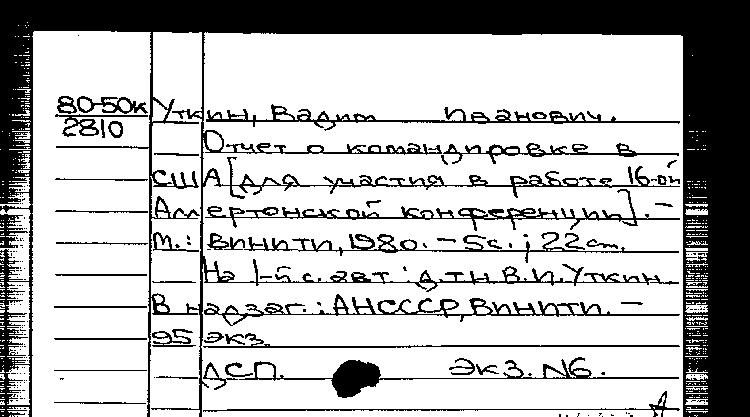 80-50к Уткин, Вадим Иванович.
2810 Отчет о командировке в
США [для участия в работе 16-ой
Аллертонской конференции]. –
М.: ВИНИТИ, 1980. – 5с.; 22 см.
На 1-й с. авт.: д.т.н. В.И. Уткин.
В надзаг.: АН СССР, ВИНИТИ. –
95 экз.
ДСП. Экз. N6.